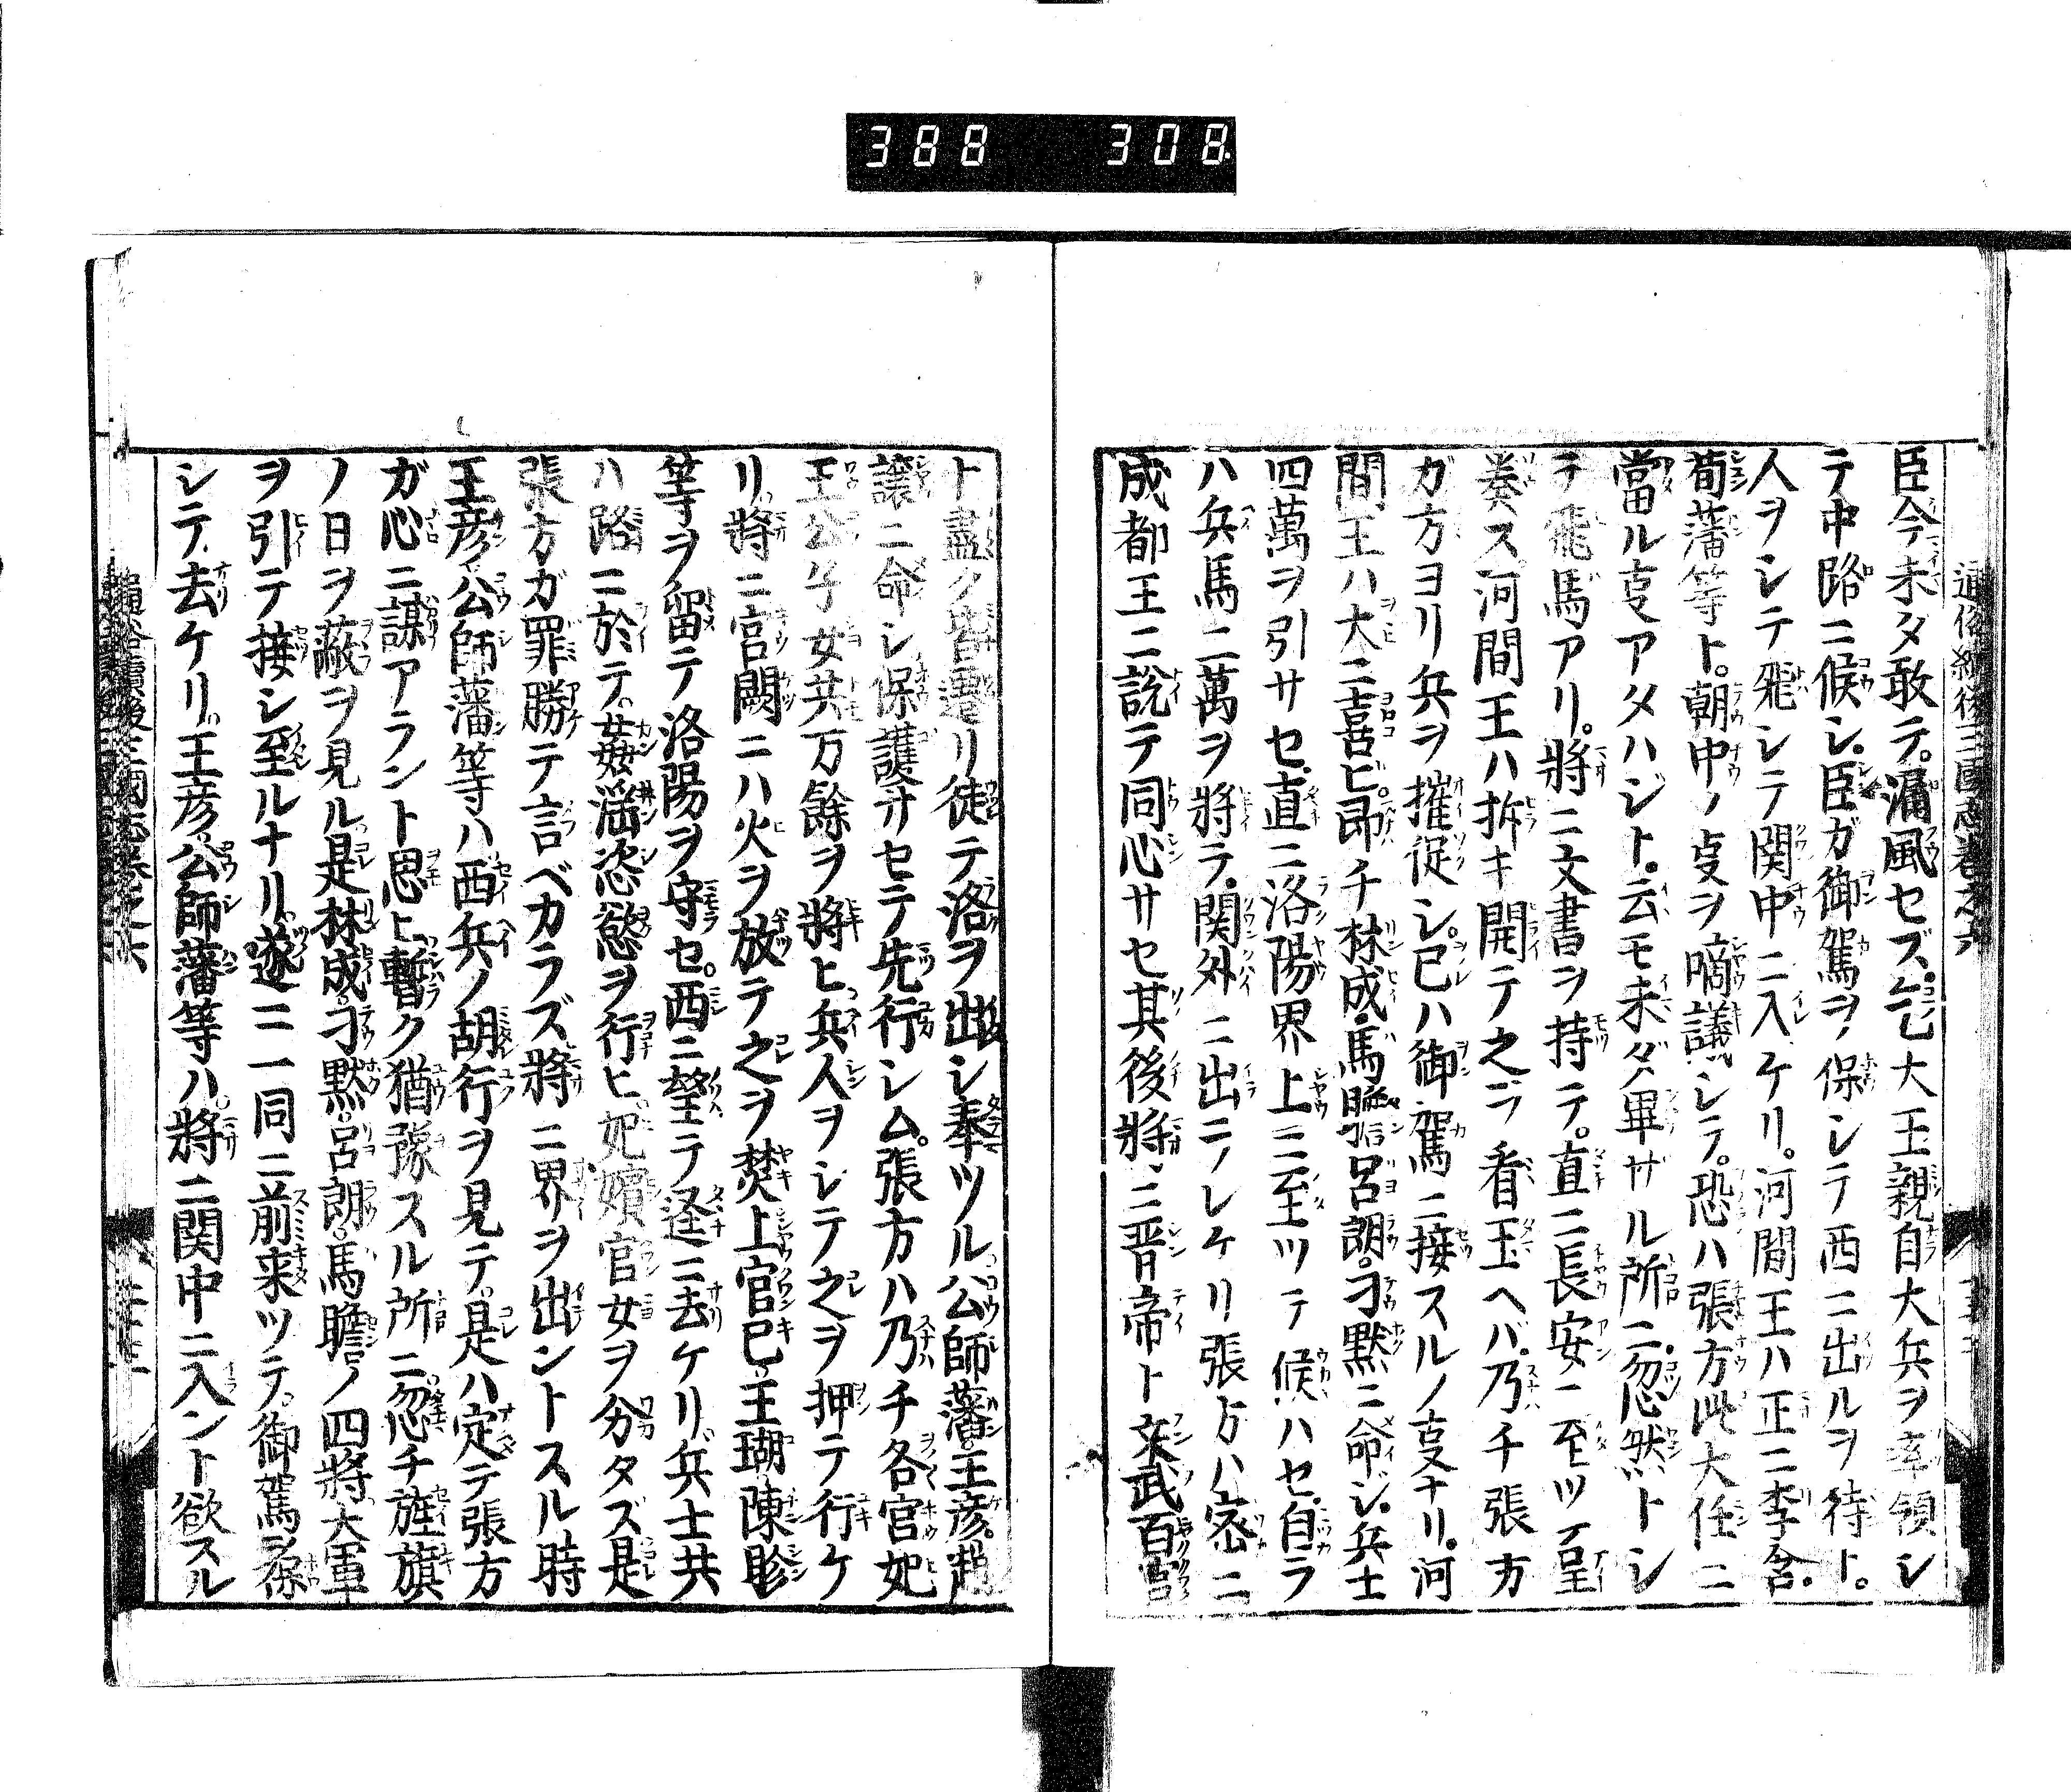 388 308
通俗續後三國志卷之六
臣今未タ敢テ漏風セズ乞大王親自大兵ヲ率領シ
テ中路ニ候シ臣ガ御駕ヲ保シテ西ニ出ルヲ待ト
人ヲシテ飛シテ関中ニ入ケリ河間王ハ正ニ李含
荀藩等ト朝中ノ叓ヲ商議シテ恐ハ張方此大任ニ
當ル叓アタハジト云モ未ダ畢ザル所ニ忽然トシ
テ飛馬アリ將ニ文書ヲ持テ直ニ長安ニ至ツテ呈
奏ス河間王ハ拆キ開テ之ヲ看玉ヘバ乃チ張方
ガ方ヨリ兵ヲ摧促シ已ハ御駕ニ接スルノ叓ナリ河
間王ハ大ニ喜ビ即チ林成馬瞻呂朗刁黙ニ命ジ兵士
四萬ヲ引サセ直ニ洛陽界上ニ至ツテ候ハセ自ラ
ハ兵馬二萬ヲ將テ関外ニ出ニケリ張方ハ密ニ
成都王ニ説テ同心サセ其後將ニ晋帝ト文武百官
ト盡ク皆遷リ徒テ洛ヲ出シ奉ツル公師藩王彦趙
譲ニ命シ保護サセテ先行シム張方ハ乃チ各宮妃
王公子女共万餘ヲ將ヒ兵人ヲシテ之ヲ押テ行ケ
リ將ニ宮闕ニハ火ヲ放テ之ヲ焚上官巳王瑚陳眕
等ヲ留テ洛陽ヲ守セ西ニ望テ逕ニ去ケリ兵士共
ハ路ニ於テ姦淫恣慾ヲ行ヒ妃嬪官女ヲ分タズ是
張方ガ罪勝テ言ベカラズ將ニ界ヲ出ントスル時
王彦公師藩等ハ西兵ノ胡行ヲ見テ是ハ定テ張方
ガ心ニ謀アラント思ヒ暫ク猶豫スル所ニ忽チ旌旗
ノ日ヲ蔽ヲ見ル是林成刁黙呂朗馬瞻ノ四將大軍
ヲ引テ接シ至ルナリ遂ニ一同ニ前来ツテ御駕ヲ保
シテ去ケリ王彦公師藩等ハ將ニ関中ニ入ント欲スル